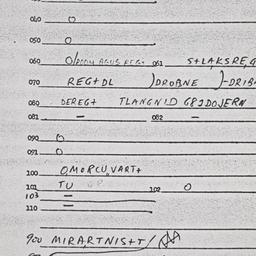 040 O
050 O
060 061 S+LAKSRE,G
070 REG+DL )DROBNE )-DRIB
080 DEREG+ TLANGNID G8JDOJERN
081 — 082 —
090 O
091 O
100 O,MORCU,VART+
101 TU 102 O
103 —
110 —
900 MIRARTNIS+T/